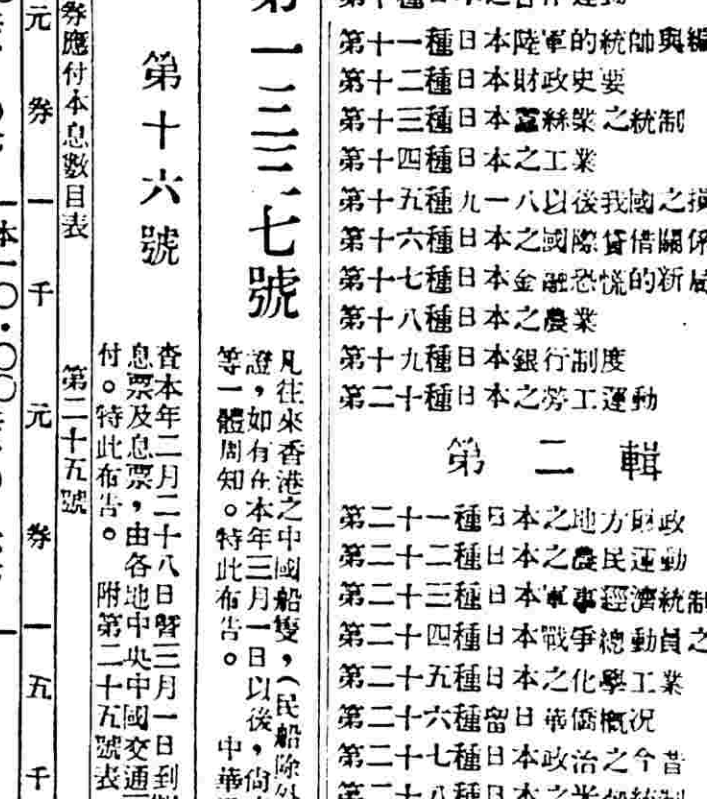 第十一種日本陸軍的統帥與編
第十二種日本財政史要
第十三種日本蠶絲業之統制
第十四種日本之工業
第十五種九一八以後我國之損
第十六種日本之國際貸借關係
第十七種日本金融恐慌的新局
第十八種日本之農業
第十九種日本銀行制度
第二十種日本之勞工運動
第二輯
第二十一種日本之地方財政
第二十二種日本之農民運動
第二十三種日本軍事經濟統制
第二十四種日本戰爭總動員之
第二十五種日本之化學工業
第二十六種留日華僑概況
第二十七種日本政治之今昔
第二十八種日本之
第一三三七號
凡往來香港之中國船隻，（民船除外
證，如有在本年三月一日以後，倘
等一體周知。特此布告。 中華
第十六號
查本年二月二十八日暨三月一日到
息票及息票，由各地中央中國交通
付。特此布告。 附第二十五號表
券應付本息數目表 第二十五號
元券 一千元券 一五千
本一〇·〇〇